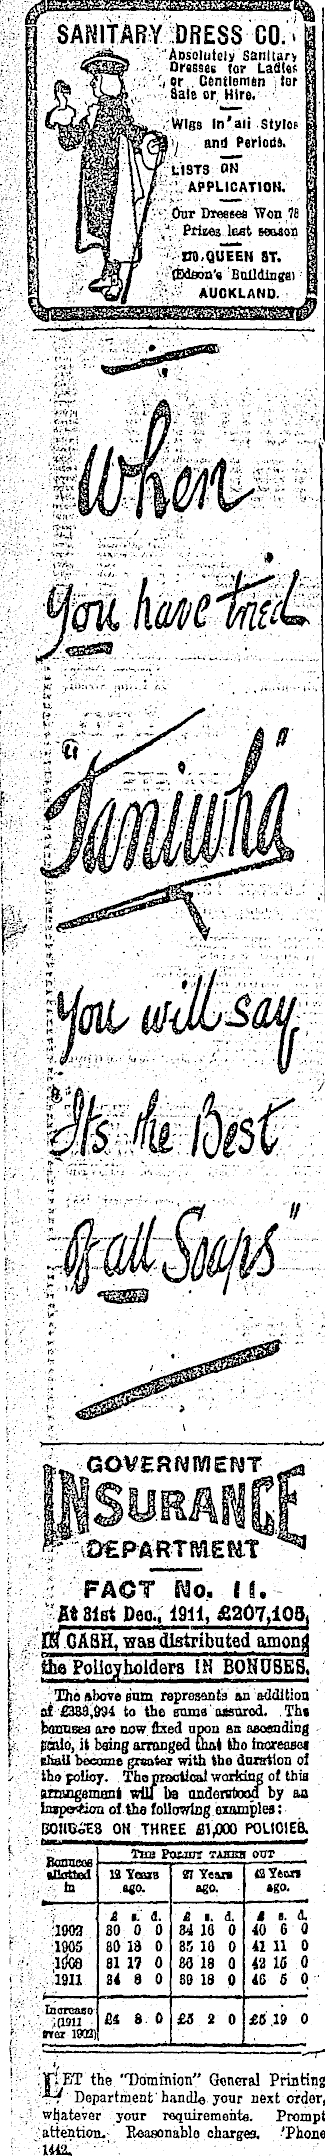 SANITARY DRESS CO.
Absolutely Sanitary
Dresses for Ladies
or Gentlemen for
Sale or Hire.
Wigs in all Styles
and Periods.
LISTS ON
APPLICATION.
Our Dresses Won 78
Prizes last season
QUEEN ST.
(Edson's Buildings)
AUCKLAND.
When
you have tried
"Taniwha"
you will say
"Its the Best
of all Soaps"
GOVERNMENT
INSURANCE
DEPARTMENT
FACT No. 11.
At 31st Dec., 1911, £207,105,
IN CASH, was distributed among
the Policyholders IN BONUSES.
The above sum represents an addition
of £389,994 to the sums assured. The
bonuses are now fixed upon an ascending
scale, it being arranged that the increases
shall become greater with the duration of
the policy. The practical working of this
arrangement will be understood by an
inspection of the following examples:
BONUSES ON THREE £1,000 POLICIES.
Bonuses allotted in | THE POLICY TAKEN OUT
12 Years ago. | 27 Years ago. | 42 Years ago.
£ s. d. | £ s. d. | £ s. d.
1902 | 30 0 0 | 34 16 0 | 40 6 0
1905 | 30 18 0 | 35 16 0 | 41 11 0
1908 | 31 17 0 | 36 18 0 | 42 15 0
1911 | 34 8 0 | 39 18 0 | 46 5 0
Increase (1911 over 1902) | £4 8 0 | £5 2 0 | £5 19 0
LET the "Dominion" General Printing
Department handle your next order,
whatever your requirements. Prompt
attention. Reasonable charges. 'Phone
1442.